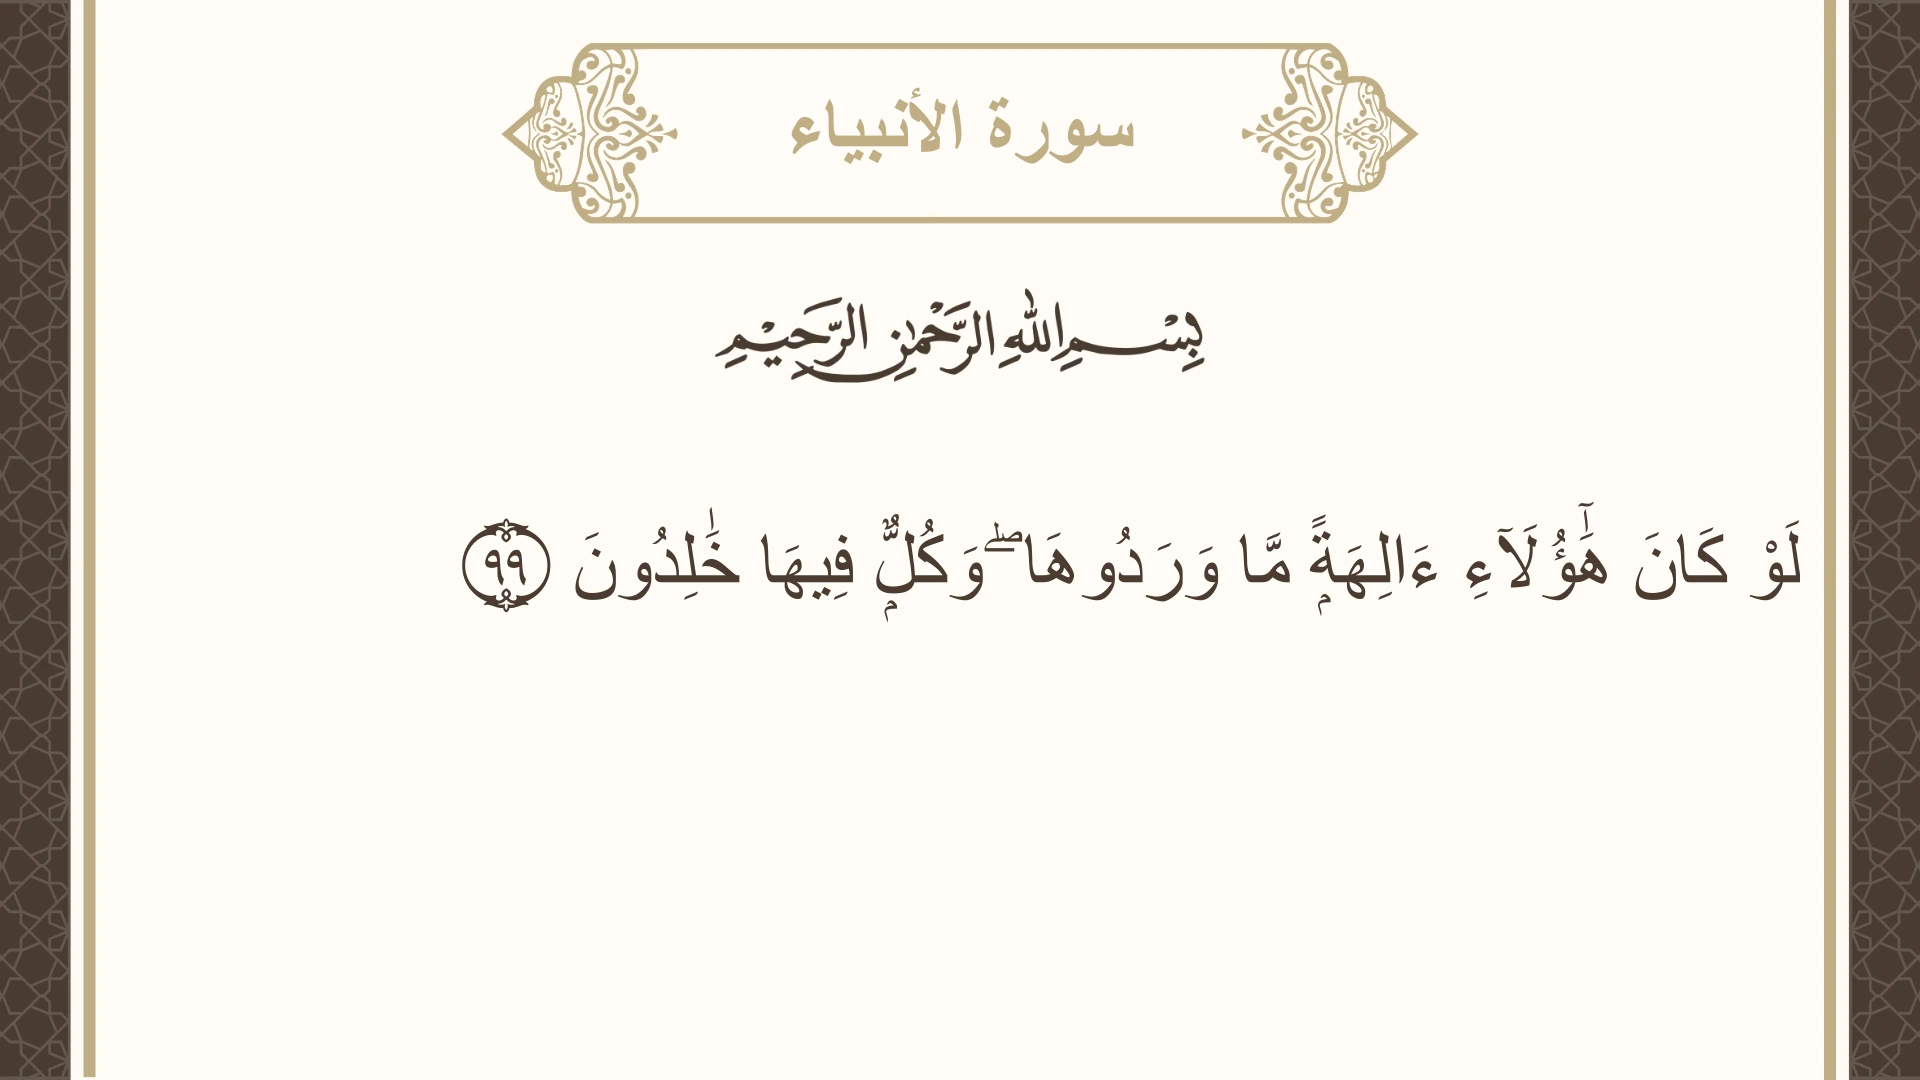 سورة الأنبياء
بِسْمِ اللهِ الرَّحْمٰنِ الرَّحِيْمِ
لَوْ كَانَ هَٰٓؤُلَآءِ ءَالِهَةًۭ مَّا وَرَدُوهَا ۖ وَكُلٌّۭ فِيهَا خَٰلِدُونَ ٩٩